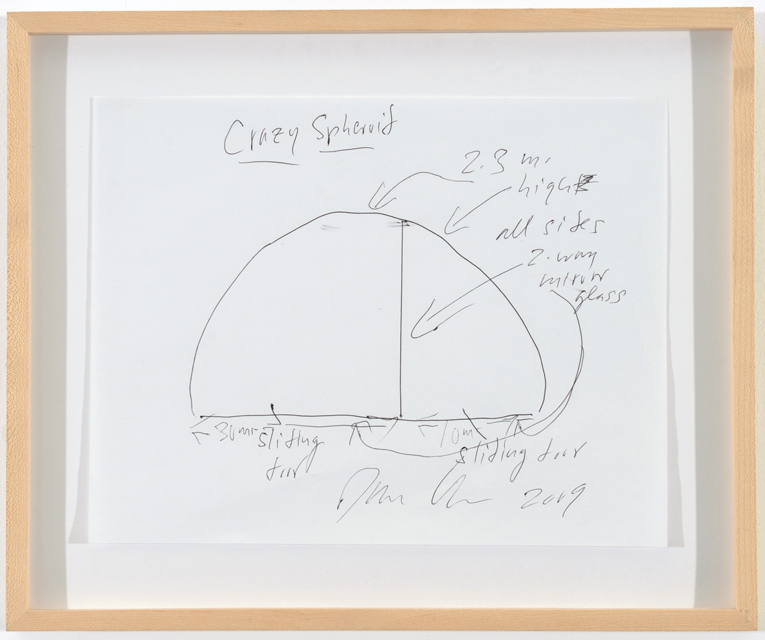 Crazy Spheroid
2.3 m.
high
all sides
2-way
mirror
glass
30m
sliding
door
10m
sliding door
2009